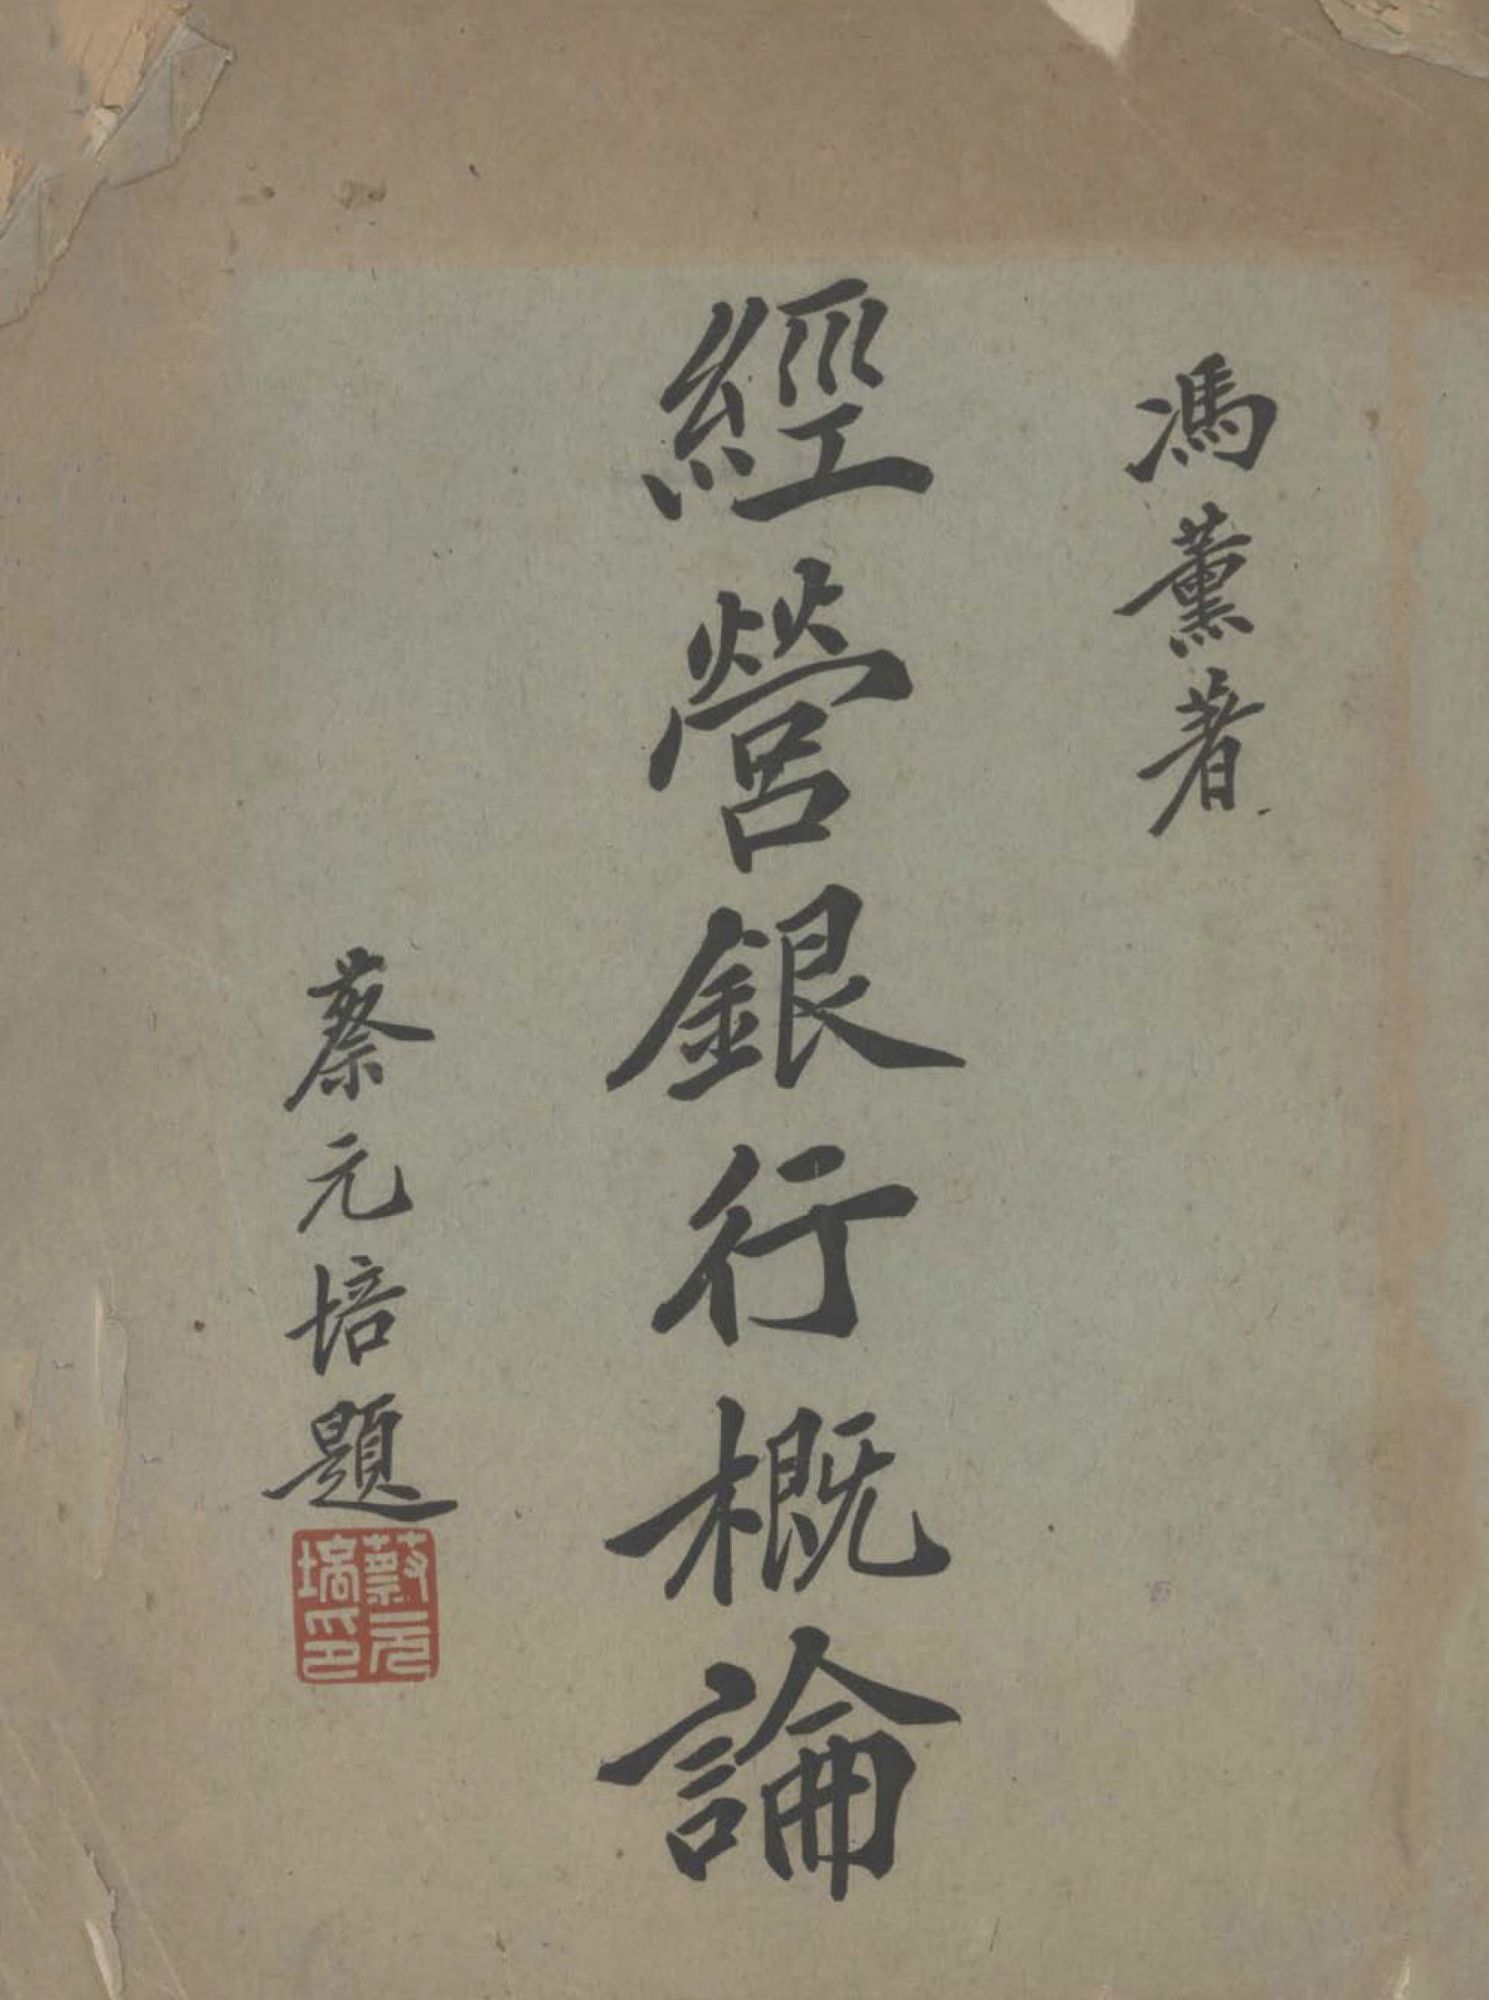 馮薰著
經營銀行概論
蔡元培題
蔡元
培印